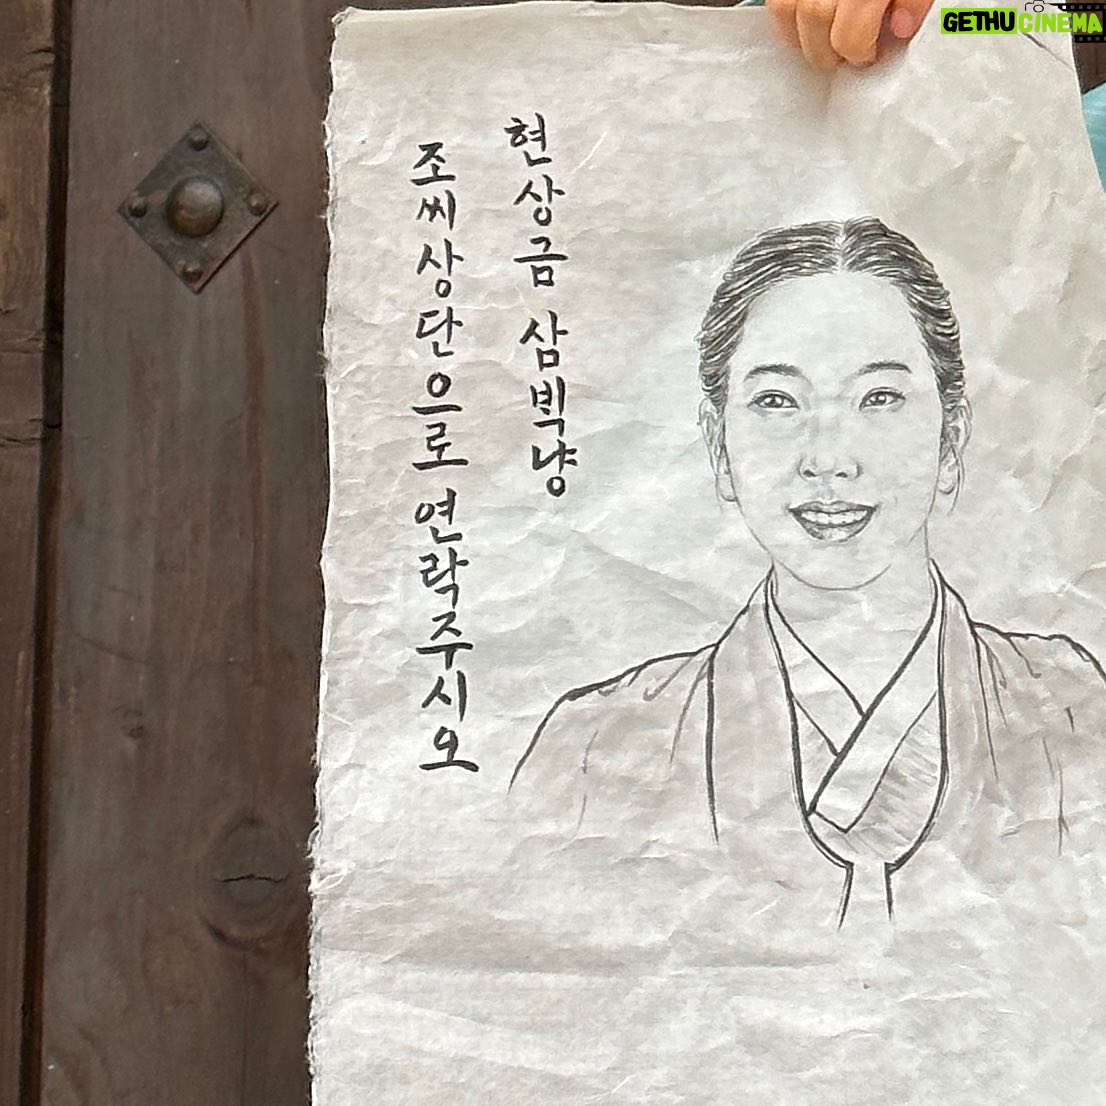 현상금 삼백냥
조씨상단으로 연락주시오
GETHUCINEMA